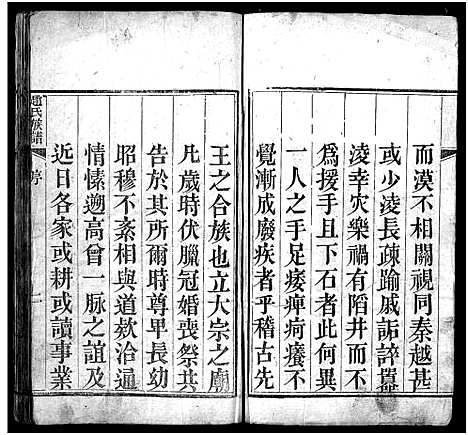 而漠不相關視同秦越甚
或少淩長疎踰戚詬誶嚚
淩幸災樂禍有陷井而不
爲援手且下石者此何異
一人之手足痿痺疴癢不
覺漸成廢疾者乎稽古先
王之合族也立大宗之廟
凡歲時伏臘冠婚喪祭共
告於其所爾時尊卑長幼
昭穆不紊相與道欵洽通
情愫遡高曾一脉之誼及
近日各家或耕或讀事業
趙氏族譜
序
二